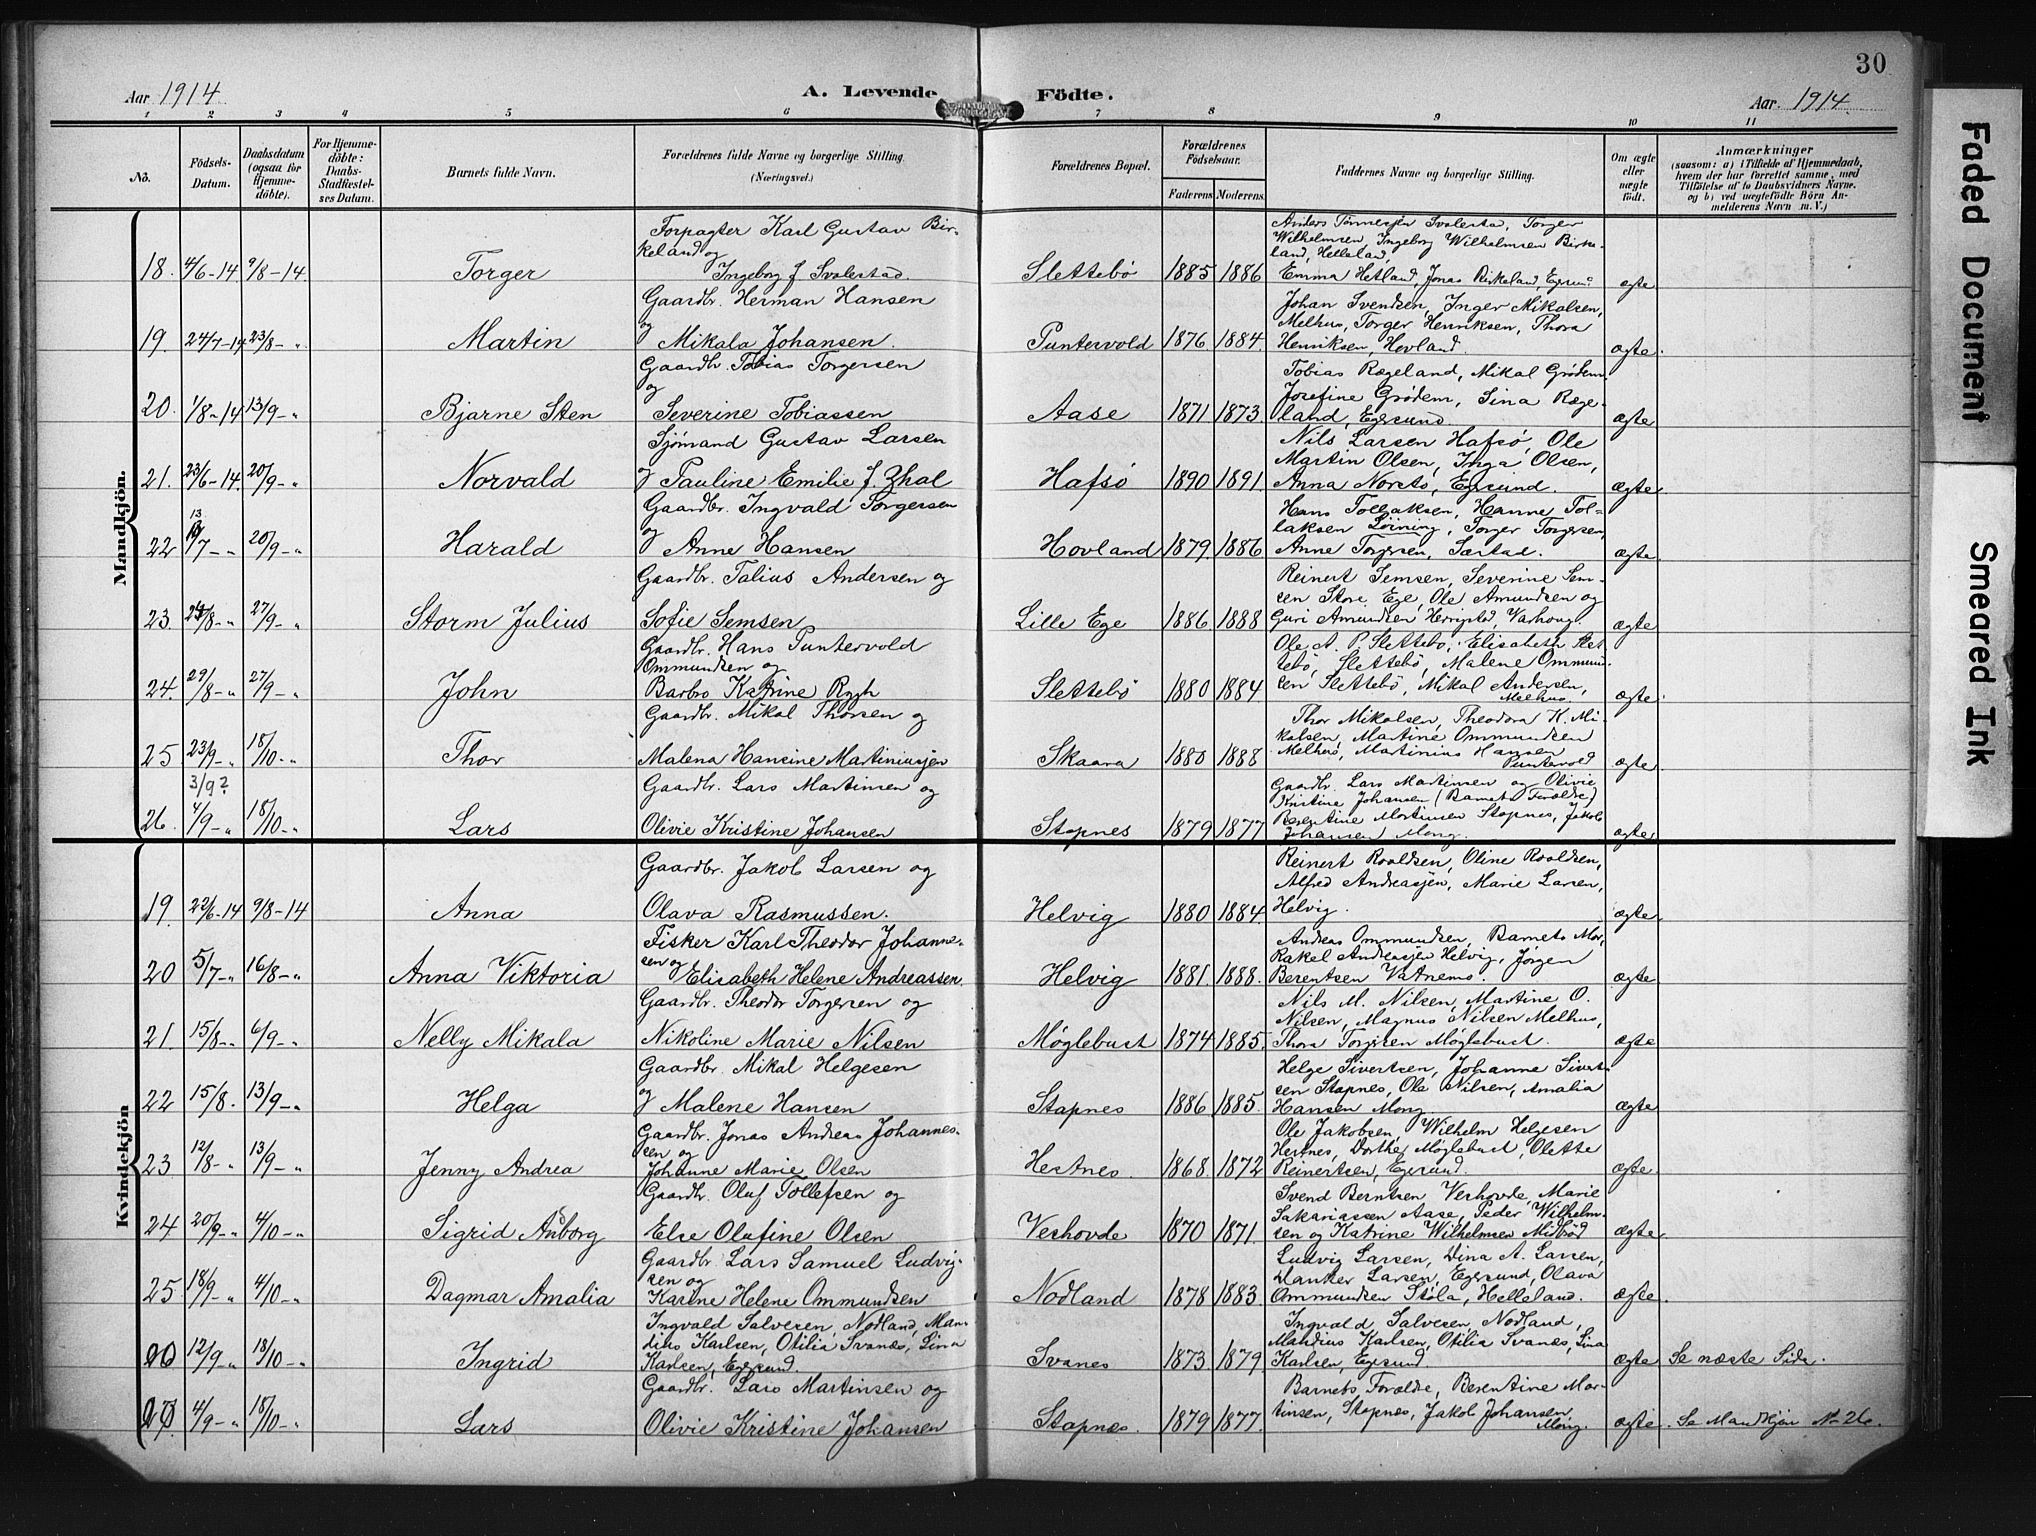 30
Aar 1914
A. Levende
Födte.
Aar. 1914.
1 2 3 4 5 6 7 8 9 10 11
No.
Födsels-Datum.
Daabsdatum (ogsaa for Hjemmedöbte).
For Hjemmedöbte: Daabs-Stadfæstelses Datum.
Barnets fulde Navn.
Forældrenes fulde Navne og borgerlige Stilling. (Næringsvei.)
Forældrenes Bopæl.
Forældrenes Födselsaar.
Faderens Moderens
Faddernes Navne og borgerlige Stilling.
Om ægte eller uægte födt.
Anmærkninger
(saasom: a) i Tilfælde af Hjemmedaab, hvem der har forrettet samme, med Tilföielse af to Daabsvidners Navne. og b) ved uægtefödte Börn Anmelderens Navn m. V.)
Mandkjön.
18. 4/6-14. 9/8-14. Torger
Forpagter Karl Gustav Birkeland og
Ingeborg f. Svalestad.
Slettebö 1885 1886
Anders Tönnesjen Svalestad, Torger
Wilhelmsen, Ingeborg Wilhelmsen Birkeland, Helleland,
Emma Hetland, Jonas Birkeland, Egersund
ægte
19. 24/7-14 23/8-" Martin
Gaardbr. Herman Hansen
og
Mikala Johansen.
Puntervold 1876 1884
Johan Svendsen, Inger Mikalsen,
Melhus, Torger Henriksen, Thora
Henriksen, Hovland.
ægte.
20. 1/8-14 13/9-" Bjarne Sten
Gaardbr. Tobias Torgersen
og
Severine Tobiassen
Aase 1871 1873
Tobias Rægeland, Mikal Grödem
Josefine Grödem, Sina Rægeland, Egersund.
ægte
21. 23/6-14. 20/9-" Norvald
Sjömand Gustav Larsen
og Pauline Emilie f. Zhal
Hafsö 1890 1891
Nils Larsen Hafsö, Ole
Martin Olsen, Inga Olsen,
Anna Norets, Egersund.
ægte.
22 13/7-" 20/9-" Harald
Gaardbr. Ingvald Torgersen
og
Anne Hansen
Hovland 1879 1886
Hans Tollaksen, Hanne Tollaksen Löining, Torger Torgersen,
Anne Torgersen, Sæstad.
ægte.
23. 24/8-" 27/9-" Storm Julius
Gaardbr. Talius Andersen og
Sofie Semsen
Lille Ege 1886 1888
Reinert Semsen, Severine Semsen Store Ege, Ole Amundsen og
Guri Amundsen Herigstad, Varhoug.
ægte
24. 29/8-" 27/9-" John
Gaardbr. Hans Puntervold
Ommundsen og
Barbro Katrine Rygh
Slettebö 1880 1884
Ole A. P. Slettebö, Elisabeth Slettebö, Slettebö, Malene Ommundsen Slettebö, Mikal Andersen,
Melhus
ægte
25 23/9-" 18/10-" Thor
Gaardbr. Mikal Thorsen og
Malena Hansine Martiniusjen
Skaara 1880 1888
Thor Mikalsen, Theodora K. Mikalsen, Martine Ommundsen
Melhus, Martinius Hansen
Puntervold
ægte
3/9?
26. 4/9-" 18/10-" Lars
Gaardbr. Lars Martinsen og
Olivie Kristine Johansen
Stapnes 1879 1877
Gaardbr. Lars Martinsen og Olivie
Kristine Johansen (Barnets Forældre)
Berentine Martinsen Stapnes, Jakob
Johansen Mong.
ægte
Kvindekjön
19. 22/6-14 9/8-14 Anna
Gaardbr. Jakob Larsen og
Olava Rasmussen.
Helvig 1880 1884.
Reinert Roaldsen, Oline Roaldsen,
Alfred Andreasjen, Marie Larsen,
Helvig.
ægte
20 5/7-" 16/8-" Anna Viktoria
Fisker Karl Theodor Johannesen og
Elisabeth Helene Andreassen.
Helvig 1881 1888.
Andreas Ommundsen, Barnets Mor,
Rakel Andreasjen Helvig, Jörgen
Berentsen Vatnemo.
ægte
21. 15/8-" 6/9-" Nelly Mikala
Gaardbr. Theodor Torgersen og
Nikoline Marie Nilsen
Möglebust 1874 1885.
Nils M. Nilsen, Martine O.
Nilsen, Magnus Nilsen Melhus,
Thora Torgersen Möglebust.
ægte
22 15/8. 13/9-" Helga
Gaardbr. Mikal Helgesen
og Malene Hansen
Stapnes 1886 1885.
Helge Sivertsen, Johanne Sivertsen Stapnes, Ole Nilsen, Amalia
Hansen Mong
ægte
23 12/8-" 13/9-" Jenny Andrea
Gaardbr. Jonas Andreas Johannessen og
Johanne Marie Olsen
Hestnes. 1868. 1872
Ole Jakobsen, Wilhelm Helgesen
Hestnes, Dorthe Möglebust, Olette
Reinertsen, Egersund.
ægte
24 20/9-" 4/10-" Sigrid Asborg
Gaardbr. Oluf Tollefsen og
Else Olufine Olsen
Veshovde 1870 1871
Svend Berntsen Veshovde, Marie
Sakariassen Aase, Peder Wilhelmsen og Katrine Wilhelmsen Midbröd
ægte.
25 18/9-" 4/10-" Dagmar Amalia
Gaardbr. Lars Samuel Ludvigsen og
Karine Helene Ommundsen
Nodland 1878 1883.
Ludvig Larsen, Dina A. Larsen,
Danker Larsen, Egersund, Olava
Ommundsen Stöla, Helleland.
ægte.
12/9-" 18/10-" Ingrid
Ingvald Salvesen, Nodland, Mandius Karlsen, Otilia Svanes, Lina
Karlsen, Egersund.
Svanes 1873 1879
Ingvald Salvesen, Nodland,
Mandius Karlsen, Otilia Svanes, Lina
Karlsen, Egersund
ægte Se næste Side.
4/9-" 18/10-" Lars
Gaardbr. Lars Martinsen og
Olivie Kristine Johansen
Stapnes 1879 1877.
Barnets Forældre, Berentine Martinsen, Stapnes, Jakob Johansen
Mong.
ægte. Se Mandkjön No 26.
Faded Document
Smeared Ink